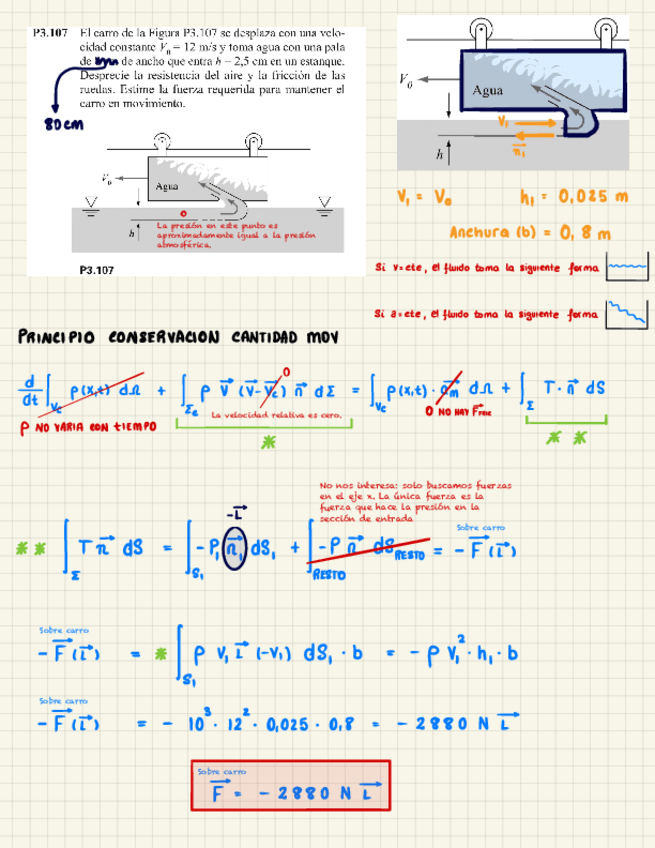 P3.107 El carro de la Figura P3.107 se desplaza con una velo-
cidad constante V₀ = 12 m/s y toma agua con una pala
de de ancho que entra h = 2,5 cm en un estanque.
Desprecie la resistencia del aire y la fricción de las
ruedas. Estime la fuerza requerida para mantener el
carro en movimiento.
80cm
V₀
Agua
h
La presión en este punto es
aproximadamente igual a la presión
atmosférica.
P3.107
V₀
Agua
V₁
n₁
h
V₁ = V₀ h₁ = 0,025 m
Anchura (b) = 0,8 m
Si v=cte, el fluido toma la siguiente forma
Si a=cte, el fluido toma la siguiente forma
PRINCIPIO CONSERVACION CANTIDAD MOV
d/dt ∫Vc ρ(x,t) dΩ + ∫Σc ρ V⃗ (V⃗-V⃗c) n⃗ dΣ = ∫Vc ρ(x,t) · dΩ + ∫Σ T·n⃗ dS
0
La velocidad relativa es cero.
ρ NO VARIA CON TIEMPO
*
* *
No nos interesa: solo buscamos fuerzas
en el eje x. La única fuerza es la
fuerza que hace la presión en la
sección de entrada
-i⃗
Sobre carro
** ∫Σ T n⃗ dS = ∫S₁ -P₁ n⃗₁ dS₁ + ∫RESTO -P n⃗ dS RESTO = -F⃗(i⃗)
Sobre carro
-F⃗(i⃗) = * ∫S₁ ρ V₁ i⃗ (-V₁) dS₁ · b = - ρ V₁² · h₁ · b
Sobre carro
-F⃗(i⃗) = - 10³ · 12² · 0,025 · 0,8 = - 2880 N i⃗
Sobre carro
F⃗ = - 2880 N i⃗